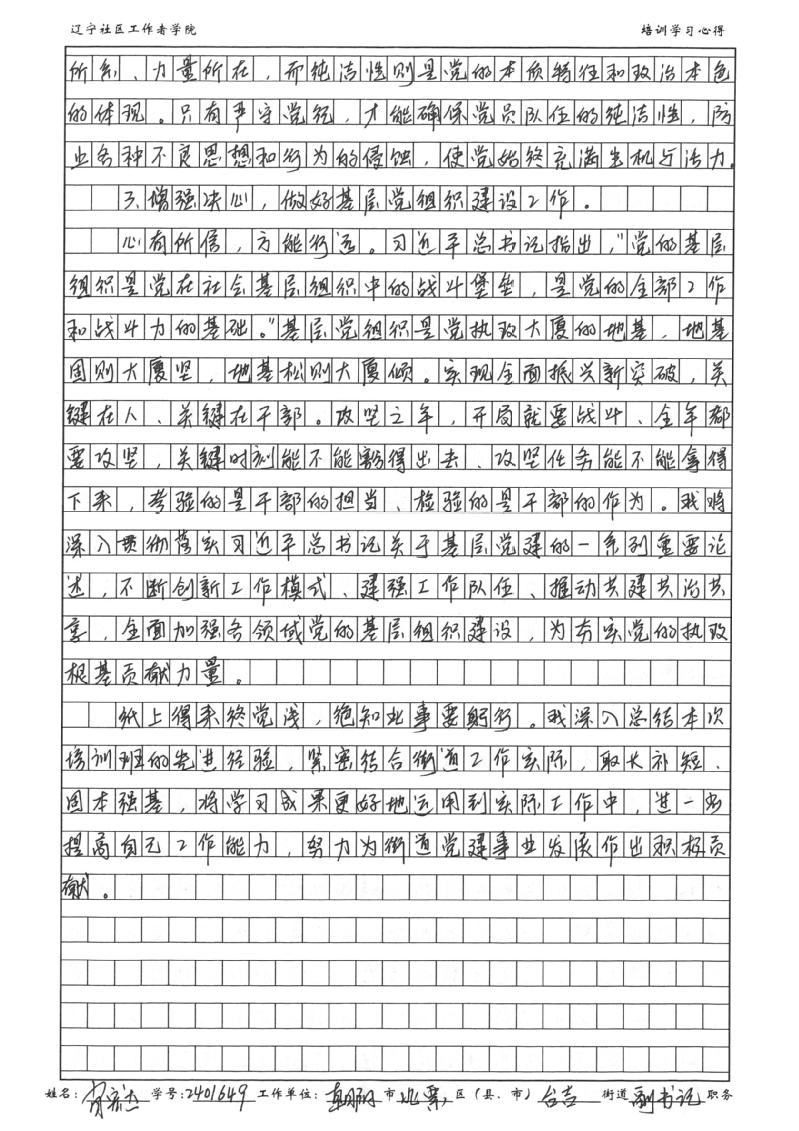 辽宁社区工作者学院 培训学习心得
所系、力量所在，而纯洁性则是党的本质特征和政治本色
的体现。只有严守党纪，才能确保党员队伍的纯洁性，防
止各种不良思想和行为的侵蚀，使党始终充满生机与活力。
3、增强决心，做好基层党组织建设工作。
心有所信，方能行远。习近平总书记指出，“党的基层
组织是党在社会基层组织中的战斗堡垒，是党的全部工作
和战斗力的基础。”基层党组织是党执政大厦的地基，地基
固则大厦坚，地基松则大厦倾。实现全面振兴新突破，关
键在人、关键在干部。攻坚之年，开局就要战斗、全年都
要攻坚，关键时刻能不能豁得出去、攻坚任务能不能拿得
下来，考验的是干部的担当、检验的是干部的作为。我将
深入贯彻落实习近平总书记关于基层党建的一系列重要论
述，不断创新工作模式、建强工作队伍、推动共建共治共
享，全面加强各领域党的基层组织建设，为夯实党的执政
根基贡献力量。
纸上得来终觉浅，绝知此事要躬行。我深入总结本次
培训班的先进经验，紧密结合街道工作实际，取长补短、
固本强基，将学习成果更好地运用到实际工作中，进一步
提高自己工作能力，努力为街道党建事业发展作出积极贡
献。
姓名： 学号:2401649 工作单位: 朝阳 市 北票 区（县、市） 台吉 街道 副书记 职务